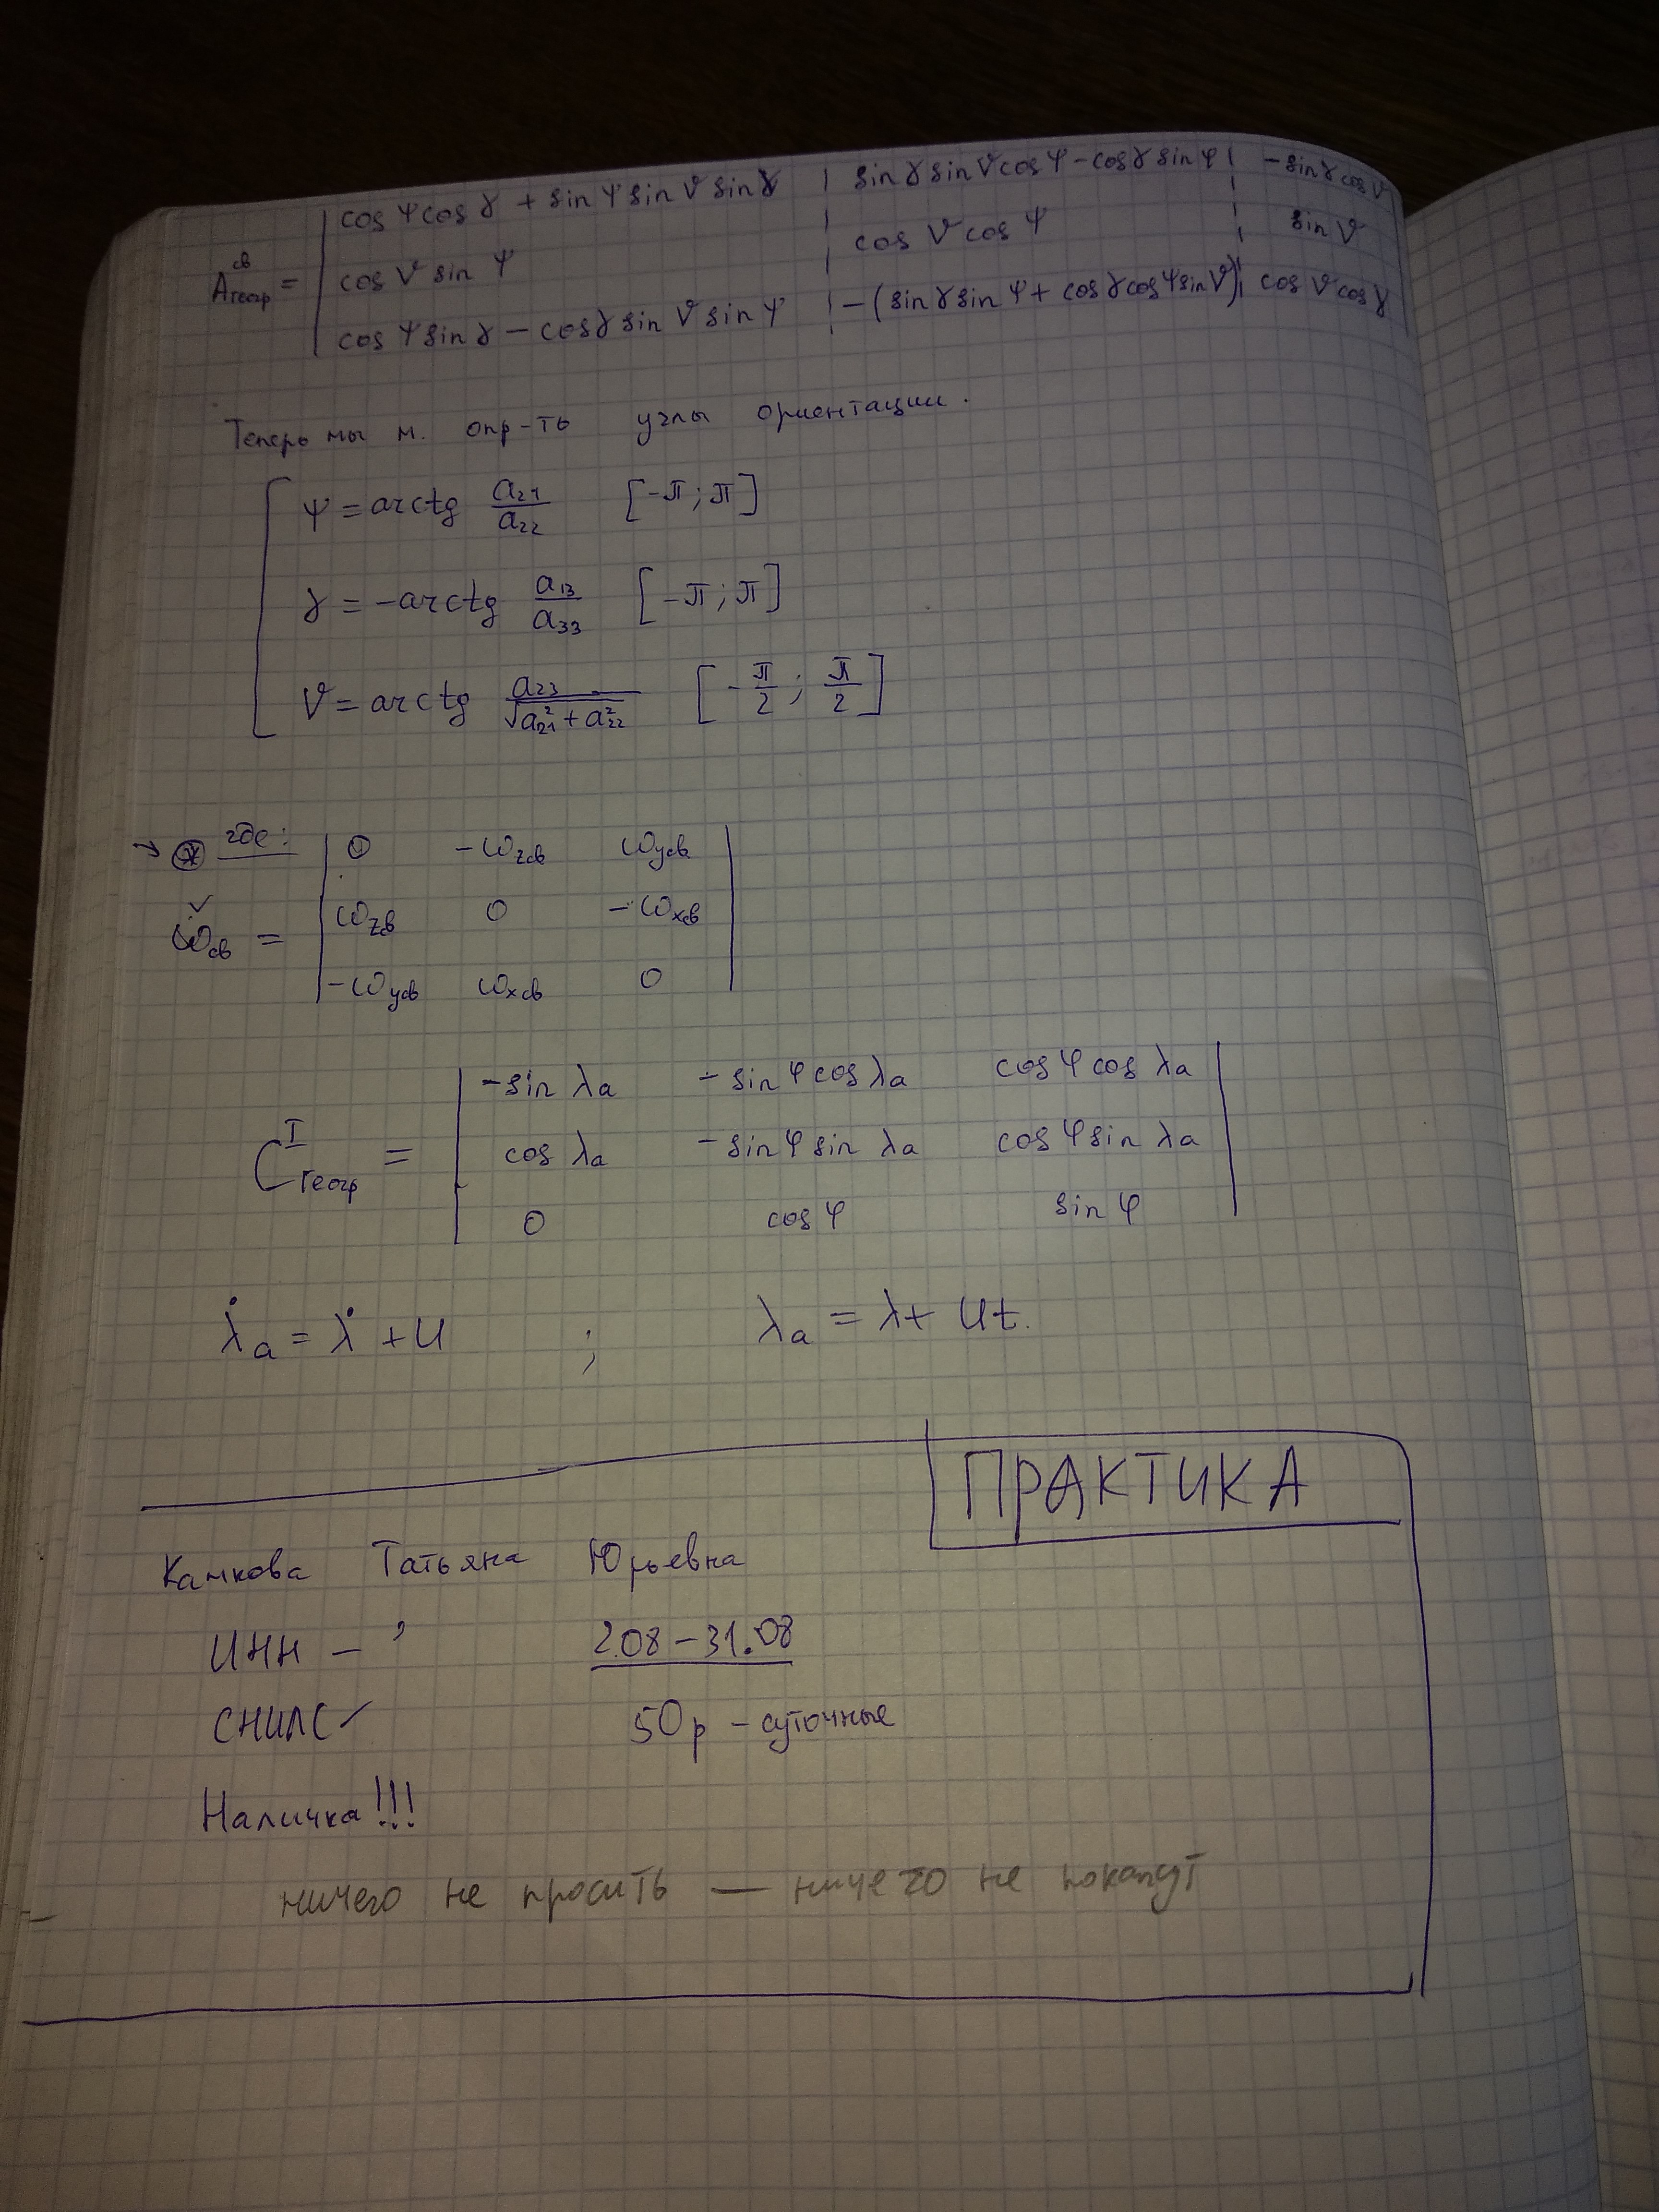 cosΨcosγ + sinΨsinϑsinγ | sinγsinϑcosΨ - cosγsinΨ | -sinγcosϑ
A^св_геогр = cosϑsinΨ | cosϑcosΨ | sinϑ
cosΨsinγ - cosγsinϑsinΨ | -(sinγsinΨ + cosγcosΨsinϑ) | cosϑcosγ
Теперь мы м. опр-ть углы ориентации.
Ψ = arctg a₂₁/a₂₂ [-π; π]
γ = -arctg a₁₃/a₃₃ [-π; π]
ϑ = arctg a₂₃/√(a₂₁² + a₂₂²) [-π/2; π/2]
→ ⊛ где:
0 -ω_zсв ω_yсв
ω̌_св = ω_zв 0 -ω_xсв
-ω_yсв ω_xсв 0
-sin λa -sinφcos λa cosφcos λa
C^I_геогр = cos λa -sinφsin λa cosφsin λa
0 cosφ sinφ
λ̇a = λ̇ + U ; λa = λ + Ut.
ПРАКТИКА
Камкова Татьяна Юрьевна
ИНН - ’ 2.08 - 31.08
СНИЛС ✓ 50р - суточные
Наличка!!!
ничего не просить — ничего не покажут